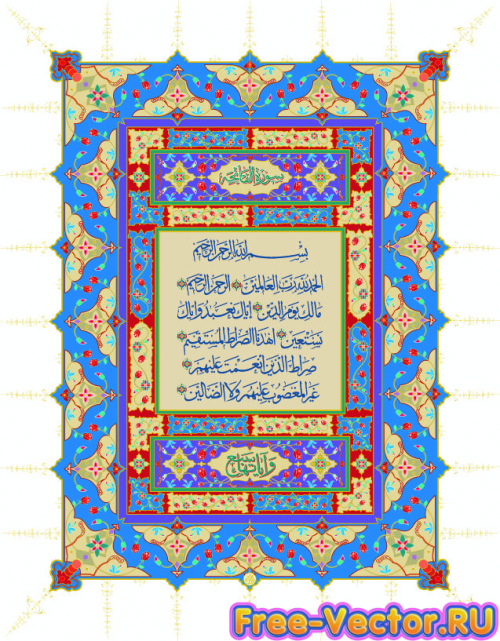 سورة الفاتحة
بسم الله الرحمن الرحيم
الحمد لله رب العالمين الرحمن الرحيم
مالك يوم الدين إياك نعبد وإياك
نستعين اهدنا الصراط المستقيم
صراط الذين أنعمت عليهم
غير المغضوب عليهم ولا الضالين
وآياتها سبع
Free-Vector.RU